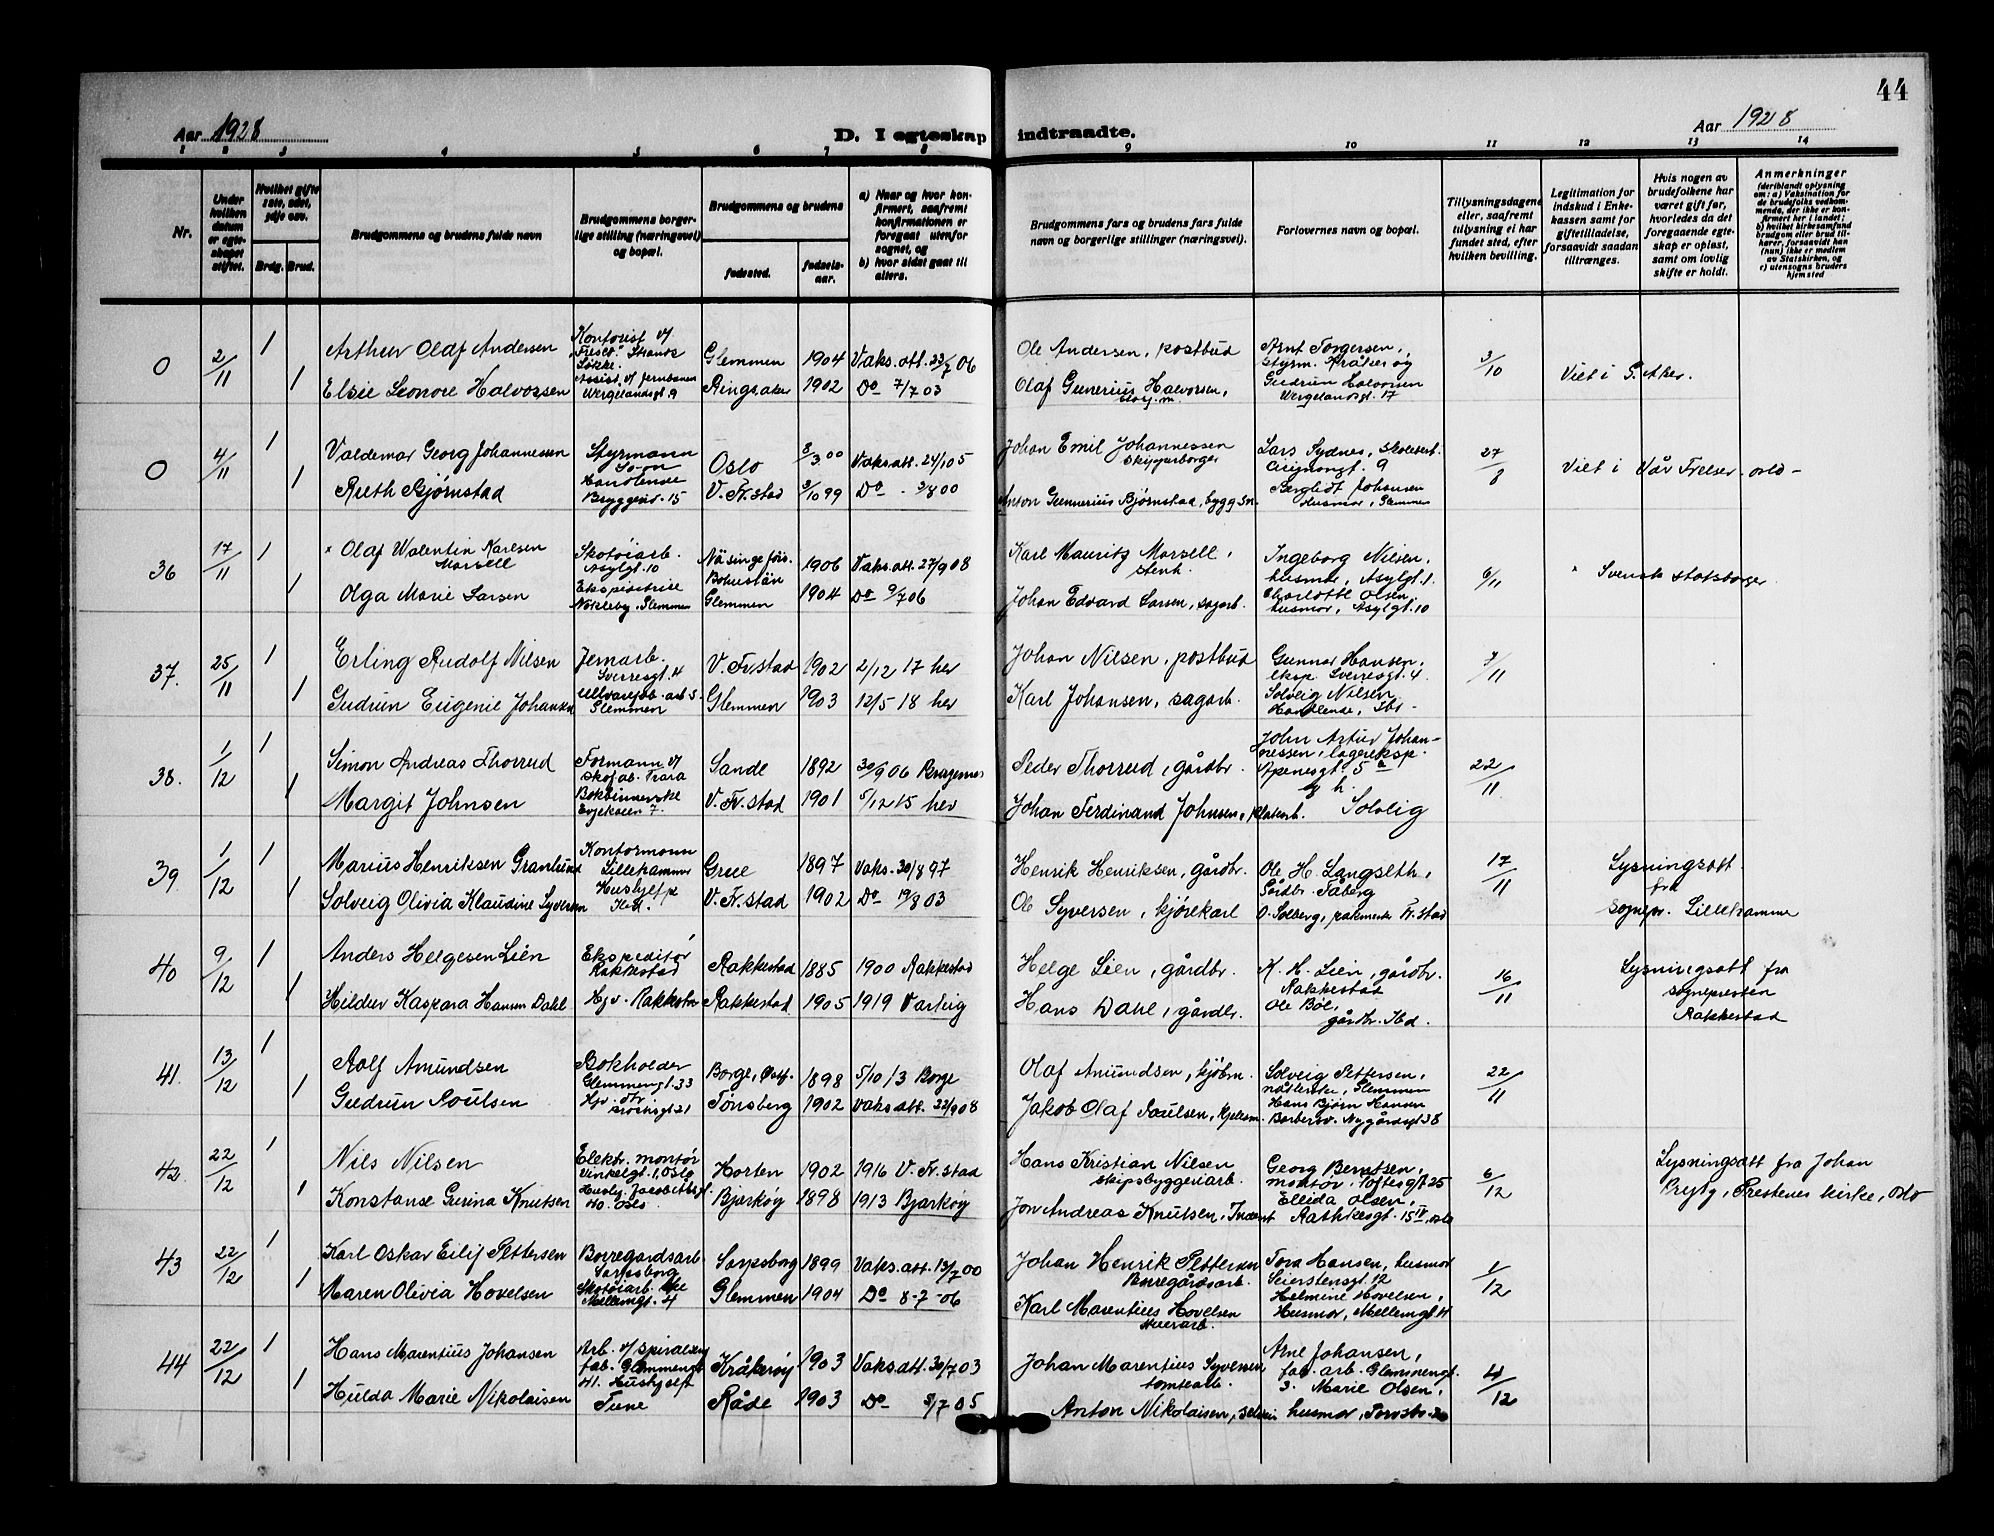 44
Aar 1928
D. I egteskap indtraadte.
Aar 1928
1 2 3 4 5 6 7 8 9 10 11 12 13 14
Nr.
Under hvilken datum er egteskapet stiftet.
Hvilket gifte 1ste, 2det, 3dje osv.
Brdg. Brud.
Brudgommens og brudens fulde navn
Brudgommens borgerlige stilling (næringsvei) og bopæl.
Brudgommens og brudens
fødested.
fødselsaar.
a) Naar og hvor konfirmert, saafremt konfirmationen er foregaat utenfor sognet, og
b) hvor sidst gaat til alters.
Brudgommens fars og brudens fars fulde navn og borgerlige stillinger (næringsvei).
Forlovernes navn og bopæl.
Tillysningsdagene eller, saafremt tillysning ei har fundet sted, efter hvilken bevilling.
Legitimation for indskud i Enkekassen samt for giftetilladelse, forsaavidt saadan tiltrænges.
Hvis nogen av brudefolkene har været gift før, hvorledes da det foregaaende egteskap er opløst, samt om lovlig skifte er holdt.
Anmerkninger
(deriblandt oplysning om: a) Vaksination for de brudefolks vedkommende, der ikke er konfirmert her i landet; b) hvilket kirkesamfund brudgom eller brud tilhører, forsaavidt han (hun) ikke er medlem av Statskirken, og c) utensogns bruders hjemsted
0 2/11 1 Arthur Olaf Andersen Kontorist v/ "Fresco" Strands Løkke. Glemmen 1904 Vaks.att. 23/7 06 Ole Andersen, postbud Arnt Torgersen, styrm. Kråkerøy 3/10 Viet i S. Aker.
1 Elsie Leonore Halvorsen Assist. v/ Jernbanen Wergelandsgt. 9 Ringsaker 1902 Do 7/7 03 Olaf Gunerius Halvorsen, Gudrun Halvorsen Wergelandsgt. 17
0 4/11 1 Valdemar Georg Johannessen Styrmann Oslo 8/3.00 Vaks.att. 24/10 5 Johan Emil Johannessen skipperborger Lars Sydnes, 27/8 Viet i Vår Frelser, oslo -
1 Ruth Bjørnstad Handlende Bryggeriv. 15 V. Fr.stad 3/10 99 Do 3/8 00 Anton Gunnerius Bjørnstad, bygg sn. Bergliot Johansen Husmor, Glemmen
36 17/11 1 × Olaf Walentin Karlsen Morsell Skotøiarb. Asylgt. 10 Näsinge förs. Bohuslän 1906 Vaks.att. 27/9 08 Karl Mauritz Morsell, stenh. Ingeborg Nilsen, husmor, Asylgt. 1. 6/11 × Svensk statsborger
1 Olga Marie Larsen Ekspeditrise Nokleby, Glemmen Glemmen 1904 Do 9/7 06 Johan Edvard Larsen, sagarb. Charlotte Olsen, husmor, Asylgt. 10
37. 25/11 1 Erling Rudolf Nilsen Jernarb. Sverresgt. 4 V. Fr.stad 1902 2/12 17 her Johan Nilsen, postbud Gunnar Hansen, eksp. Sverresgt. 4. 7/11
1 Gudrun Eugenie Johansen Glemmen Glemmen 1903 12/5 18 her Karl Johansen, sagarb. Solveig Nilsen Handlende, Ibi -
38. 1/12 1 Simon Andreas Thorrud Formann v/ skofab. Trara Sande 1892 30/9 06 Bragernes Peder Thorrud, gårdbr. John Artur Johannessen, lagereksp. Apenesgt. 5a 22/11
1 Margit Johnsen Bokbinnerske Evjekaien 7. V. Fr.stad 1901 5/12 15 her Johan Ferdinand Johnsen, Solvig
39 1/12 1 Marius Henriksen Granlund Kontormann Lillehammer Grue 1897 Vaks. 30/8 97 Henrik Henriksen, gårdbr. Ole H. Langseth, Gårdbr. Fåberg 17/11 Lysningsatt. fra sognepr. Lillehamme
1 Solveig Olivia Klaudine Syversen Hushjelp Ibd. V. Fr.stad 1902 Do 19/8 03 Ole Syversen, kjørekarl O. Solberg, pakmester Fr.stad
40 9/12 1 Anders Helgesen Lien Ekspeditør Rakkestad Rakkestad 1885 1900 Rakkestad Helge Lien, gårdbr. K. H. Lien, gårdbr. Rakkestad 16/11 Lysningsatt fra sognepresten Rakkestad
1 Hildur Kaspara Hansen Dahl Hjv. Rakkestad Rakkestad 1905 1919 Varteig Hans Dahl, gårdbr. Ole Bøl, gårdbr. Ibd.
41. 13/12 1 Rolf Amundsen Bokholder Glemmengt. 33 Borge, Østf. 1898 5/10 13 Borge Olaf Amundsen, kjøbm. Solveig Pettersen, Glemmen 22/11
1 Gudrun Poulsen Tønsberg 1902 Vaks.att. 22/9 08 Jakob Olaf Paulsen, Hans Bjørn Hansen Barbersv. Nygårdsgt 38
42. 22/12 1 Nils Nilsen Elektr. montør Vinkelgt. 1, Oslo Horten 1902 1916 V. Fr.stad Hans Kristian Nilsen skipsbyggeriarb. Georg Berntsen, montør, Toftesgt 25 6/12 Lysningsatt fra Johan Prytz, Prestenes kirke, oslo
1 Konstanse Gurina Knutsen Oslo Bjarkøy 1898 1913 Bjarkøy Jon Andreas Knutsen, Ellida Olsen, Rathkesgt. 15 IV, oslo
43 22/12 1 Karl Oskar Eilif Pettersen Borregardsarb Sarpsborg Sarpsborg 1899 Vaks.att. 13/7 00 Johan Henrik Pettersen Borregårdsarb. Tora Hansen, husmor Seierstensgt. 12 1/12
1 Maren Olivia Hovelsen Skotøiarb.ske Mellemgt. 4 Glemmen 1904 Do 8-7-06 Karl Marentius Hovelsen Helmine Hovelsen, Husmor, Mellemgt. 4
44 22/12 1 Hans Marentius Johansen Arb. v/ spiralseng fab. Glemmengt. 41. Kråkerøy 1903 Vaks.att. 30/7 03 Johan Marentius Syversen tomtearb. Arne Johansen, fab. arb. Glemmengt. 3. 4/12
1 Hulda Marie Nikolaisen Hushjelp Tune Råde 1903 Do 8/7 05 Anton Nikolaisen, Marie Olsen, husmor,